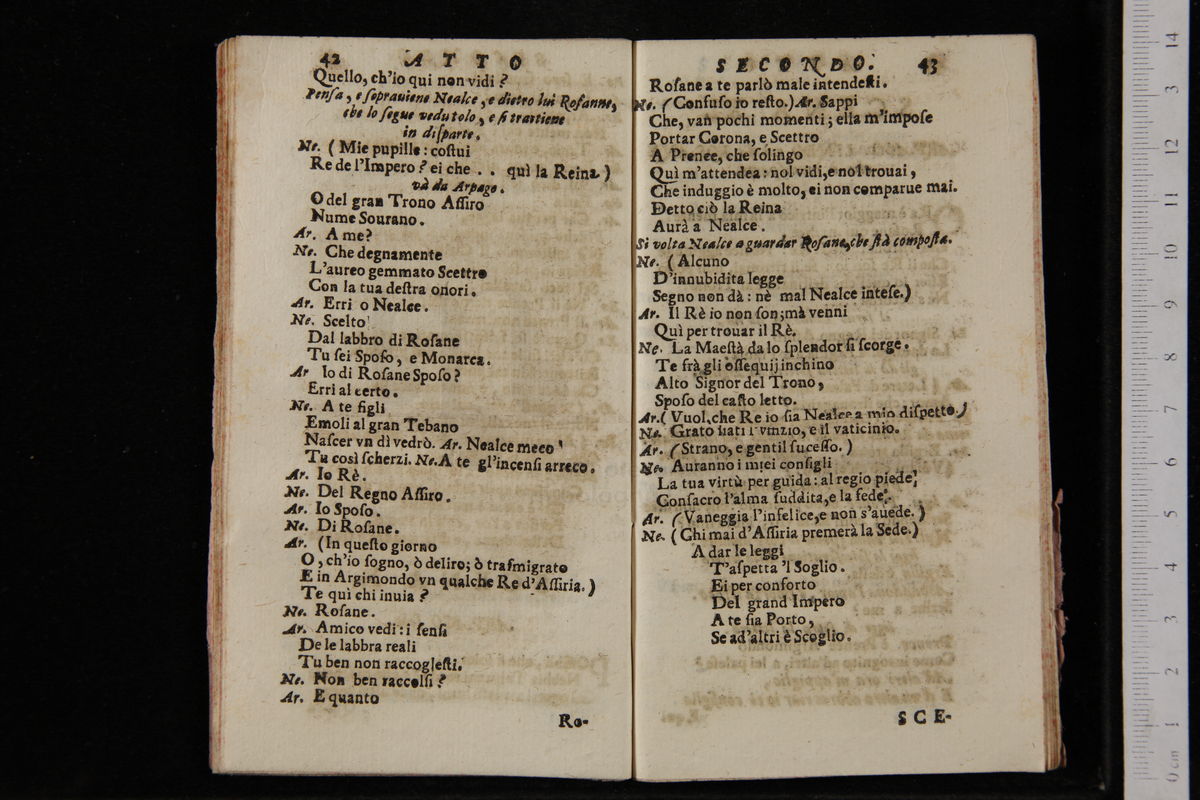 42 ATTO
Quello, ch'io qui non vidi?
Penſa, e ſoprauiene Nealce, e dietro lui Roſanne,
che lo ſegue vedutolo, e ſi trattiene
in diſparte.
Ne. (Mie pupille: coſtui
Re de l'Impero? ei che . . quì la Reina)
và da Arpago.
O del gran Trono Aſſiro
Nume Sourano.
Ar. A me?
Ne. Che degnamente
L'aureo gemmato Scettro
Con la tua deſtra onori.
Ar. Erri o Nealce.
Ne. Scelto
Dal labbro di Roſane
Tu ſei Spoſo, e Monarca.
Ar Io di Roſane Spoſo?
Erri al certo.
Ne. A te figli
Emoli al gran Tebano
Naſcer vn dì vedrò. Ar. Nealce meco
Tu così ſcherzi. Ne. A te gl'incenſi arreco.
Ar. Io Rè.
Ne. Del Regno Aſſiro.
Ar. Io Spoſo.
Ne. Di Roſane.
Ar. (In queſto giorno
O, ch'io ſogno, ò deliro; ò traſmigrato
E in Argimondo vn qualche Re d'Aſſiria.)
Te quì chi inuia?
Ne. Roſane.
Ar. Amico vedi: i ſenſi
De le labbra reali
Tu ben non raccogleſti.
Ne. Non ben raccolſi?
Ar. E quanto
Ro-
SECONDO. 43
Roſane a te parlò male intendeſti.
Ne. (Confuſo io reſto.) Ar. Sappi
Che, van pochi momenti; ella m'impoſe
Portar Corona, e Scettro
A Prence, che ſolingo
Quì m'attendea: nol vidi, e nol trouai,
Che induggio è molto, ei non comparue mai.
Detto ciò la Reina
Aurà a Nealce.
Si volta Nealce a guardar Roſane, che ſtà compoſta.
Ne. (Alcuno
D'innubidita legge
Segno non dà: nè mal Nealce inteſe.)
Ar. Il Rè io non ſon; mà venni
Quì per trouar il Rè.
Ne. La Maeſtà da lo ſplendor ſi ſcorge.
Te frà gli oſſequij inchino
Alto Signor del Trono,
Spoſo del caſto letto.
Ar. (Vuol, che Re io ſia Nealce a mio diſpetto.)
Ne. Grato ſiati l'vfizio, e il vaticinio.
Ar. (Strano, e gentil ſuceſſo.)
Ne. Auranno i miei conſigli
La tua virtù per guida: al regio piede,
Conſacro l'alma ſuddita, e la fede.
Ar. (Vaneggia l'infelice, e non s'auede.)
Ne. (Chi mai d'Aſſiria premerà la Sede.)
A dar le leggi
T'aſpetta 'l Soglio.
Ei per conforto
Del grand Impero
A te ſia Porto,
Se ad'altri è Scoglio.
SCE-